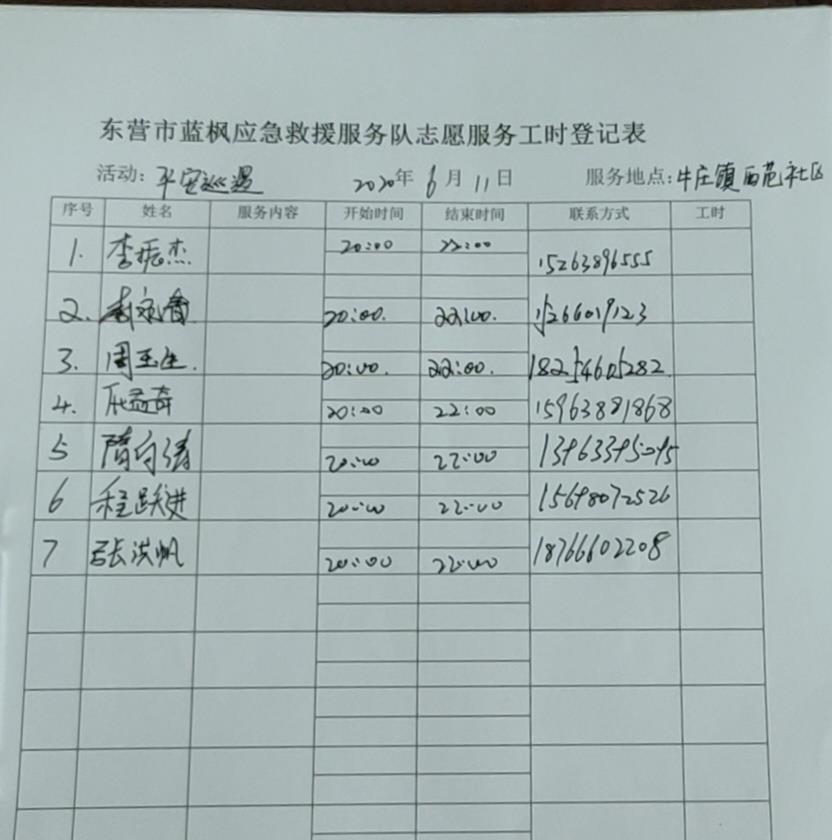 东营市蓝枫应急救援服务队志愿服务工时登记表
活动: 平安巡逻 2020年 6月 11日 服务地点: 牛庄镇西苑社区
序号 姓名 服务内容 开始时间 结束时间 联系方式 工时
1. 李振杰 20:00 22:00 15263896555
2. 20:00. 22:00. 15266019123
3. 周玉生. 20:00. 22:00. 18254605282.
4. 20:00 22:00 15963881868
5 隋向清 20:00 22:00
6 程跃进 20:00 22:00
7 张洪帆 20:00 22:00 18766602208